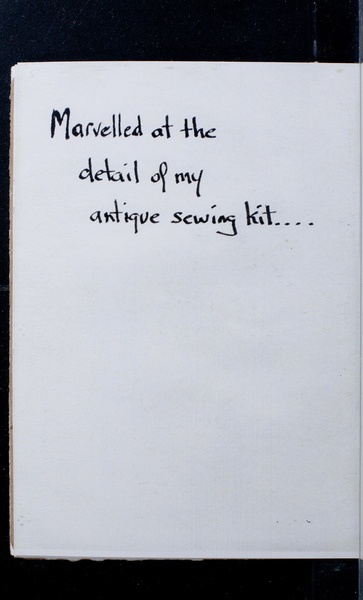 Marvelled at the
detail of my
antique sewing kit....